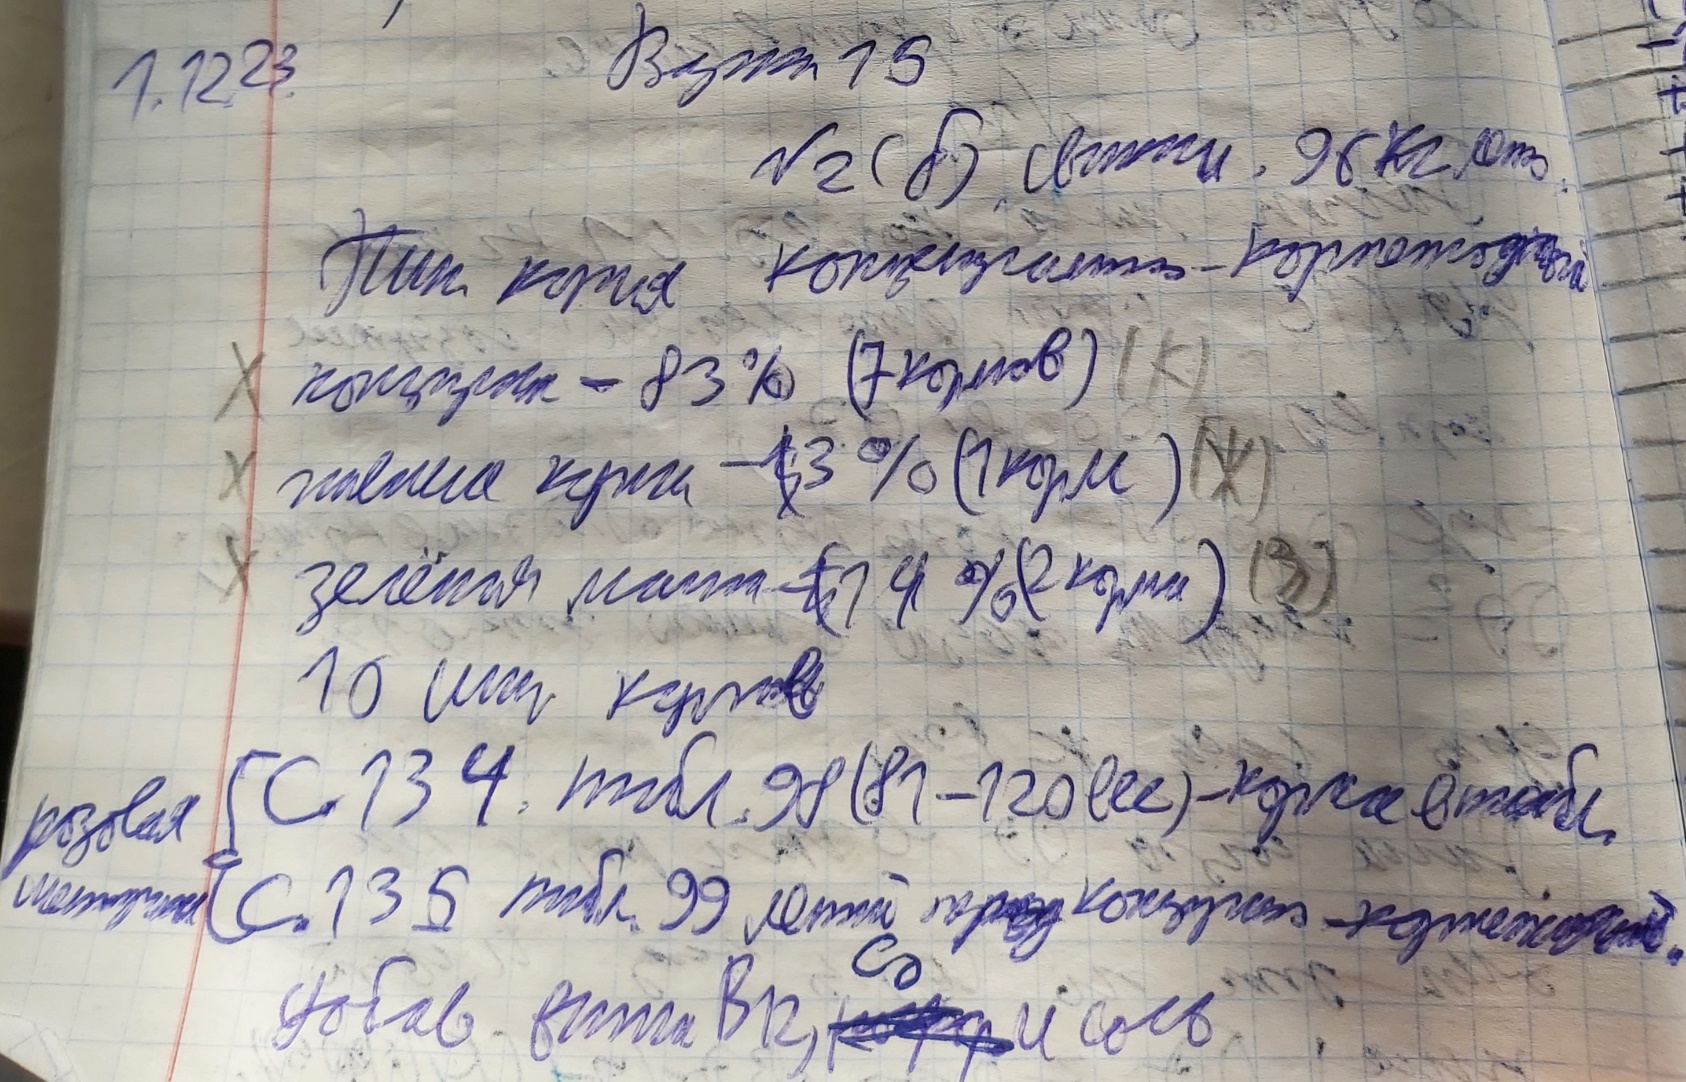 1.12.23.
Вариант 15
№2 (б) свиньи. 96 кг
Тип корма концентратно-корнеплодный
X концентр - 83% (7 кормов) (К)
X корма - 3% (1 корм) (Ж)
X зелёная масса - 14% (2 корма) (З)
10 шт кормов
розовая методичка
С. 134. табл. 98 (81-120 вес) - корма в табл.
С. 135 табл. 99 летний период концентратно-корнеплодный.
Co
добав. витамин B12, и соль